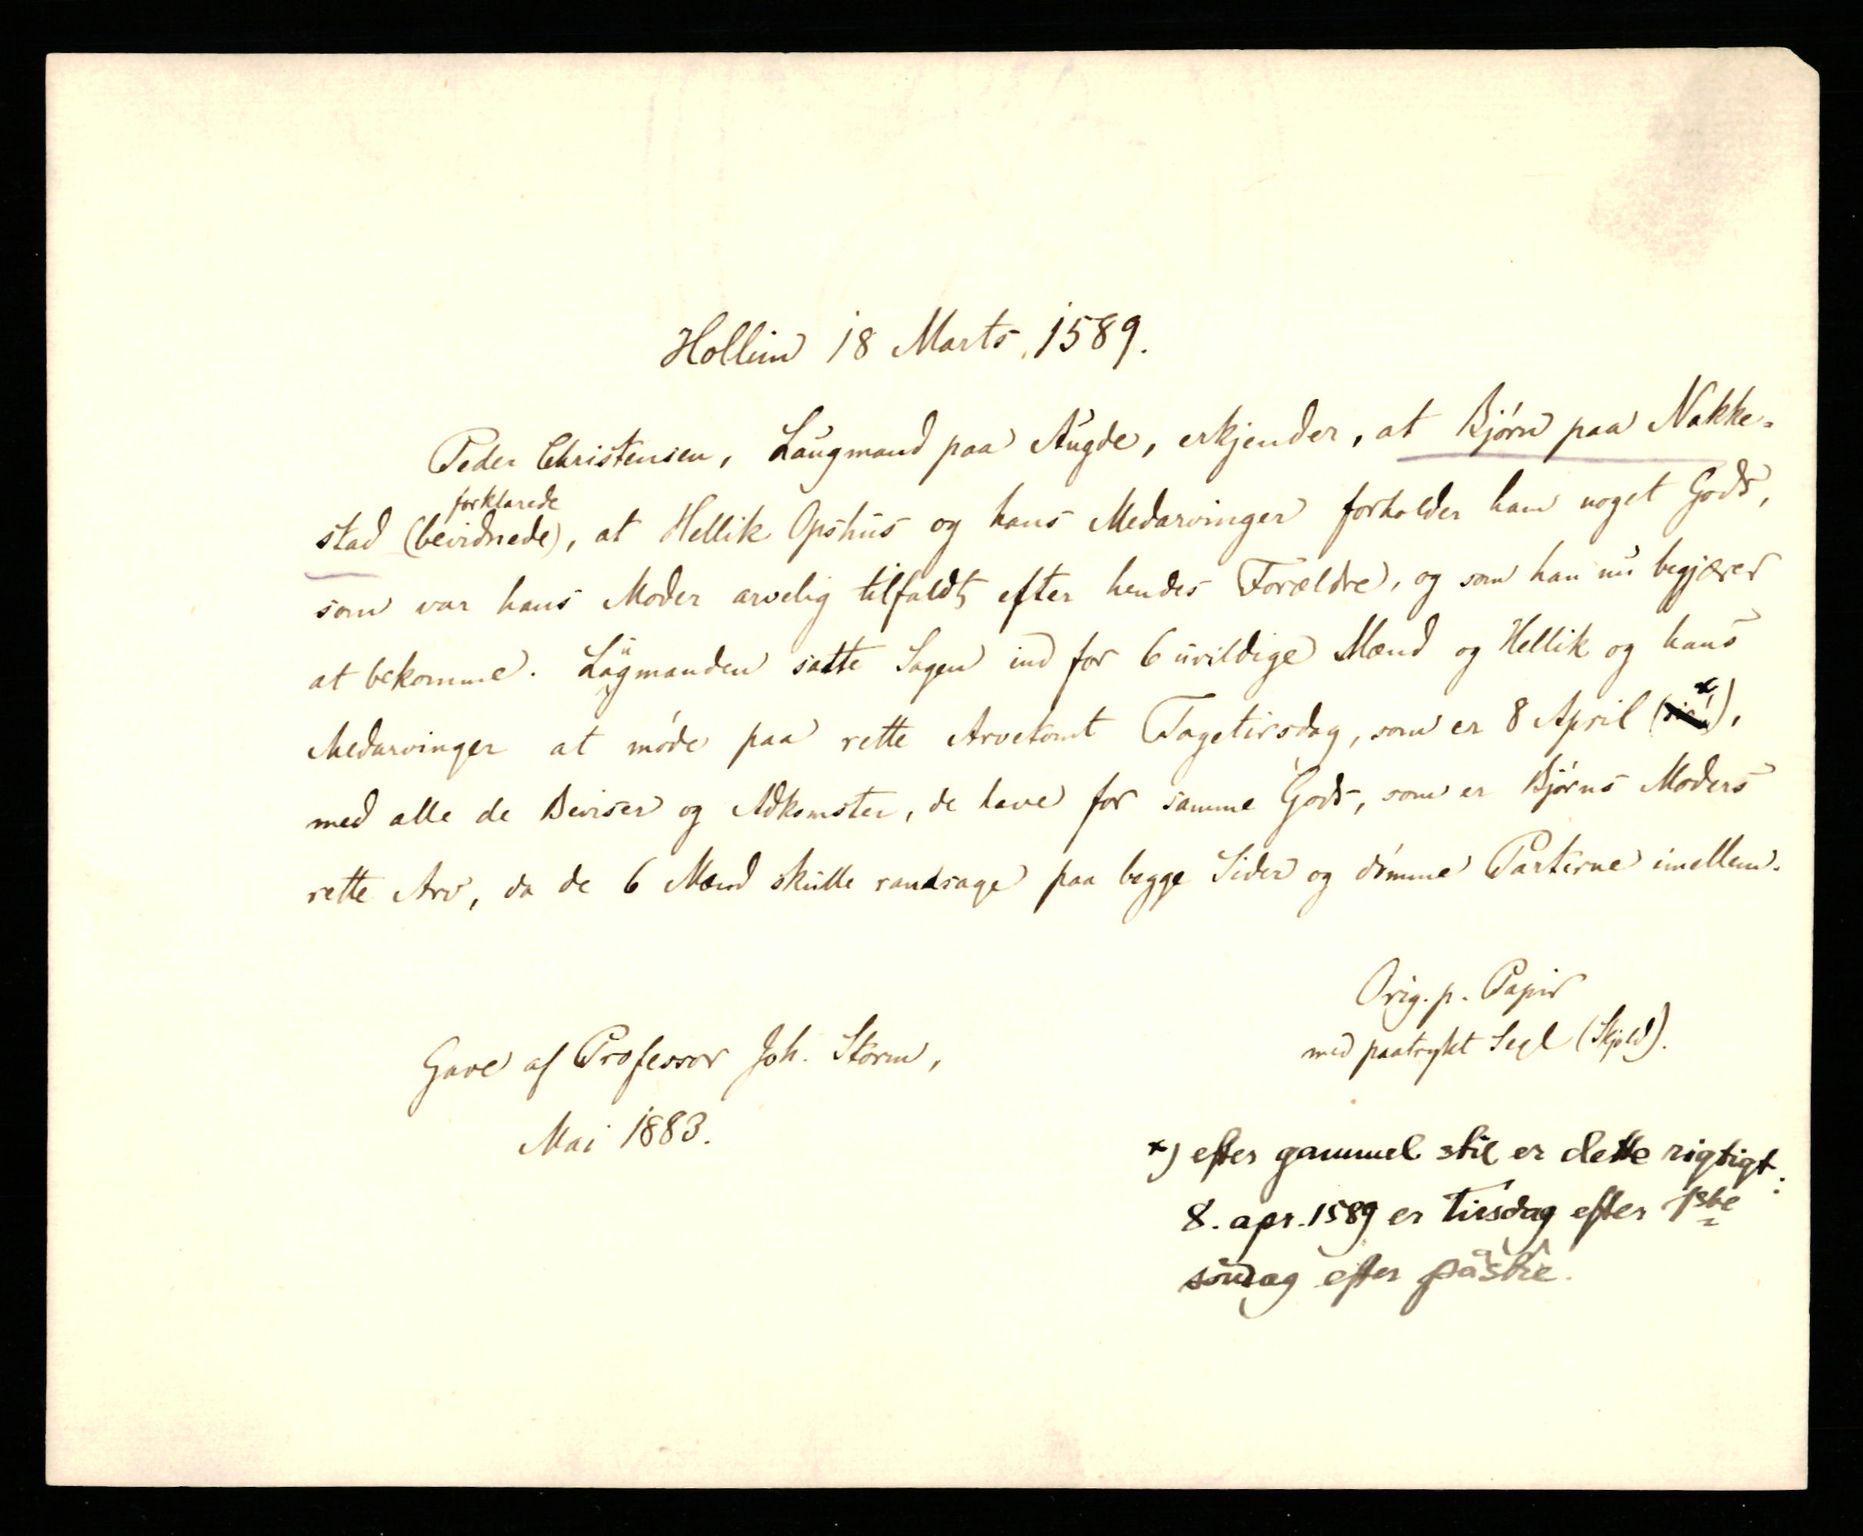 Hollim 18 Marts 1589.
Peder Christensen, Laugmand paa Augde, erkjender, at Bjørn paa Nakke-
forklarede
stad (bevidnede), at Hellik Opshus og hans Medarvinger forholder ham noget Gods,
som var hans Moder arvelig tilfaldt efter hendes Forældre, og som han nu begjærer
at bekomme. Laugmanden satte Sagen ind for 6 uvildige Mænd og Hellik og hans
Medarvinger at møde paa rette Arvetomt Fagetirsdag, som er 8 April (sic! x),
med alle de Beviser og Adkomster, de have for samme Gods, som er Bjørns Moders
rette Arv, da de 6 Mænd skulle randsage paa begge Sider og dømme Parterne imellem.
Orig. p. Papir
med paatrykt Segl (Skjold).
Gave af Professor Joh. Storm,
Mai 1883.
x) efter gammel stil er dette rigtigt:
8. apr. 1589 er Tirsdag efter 1ste
søndag efter påske.